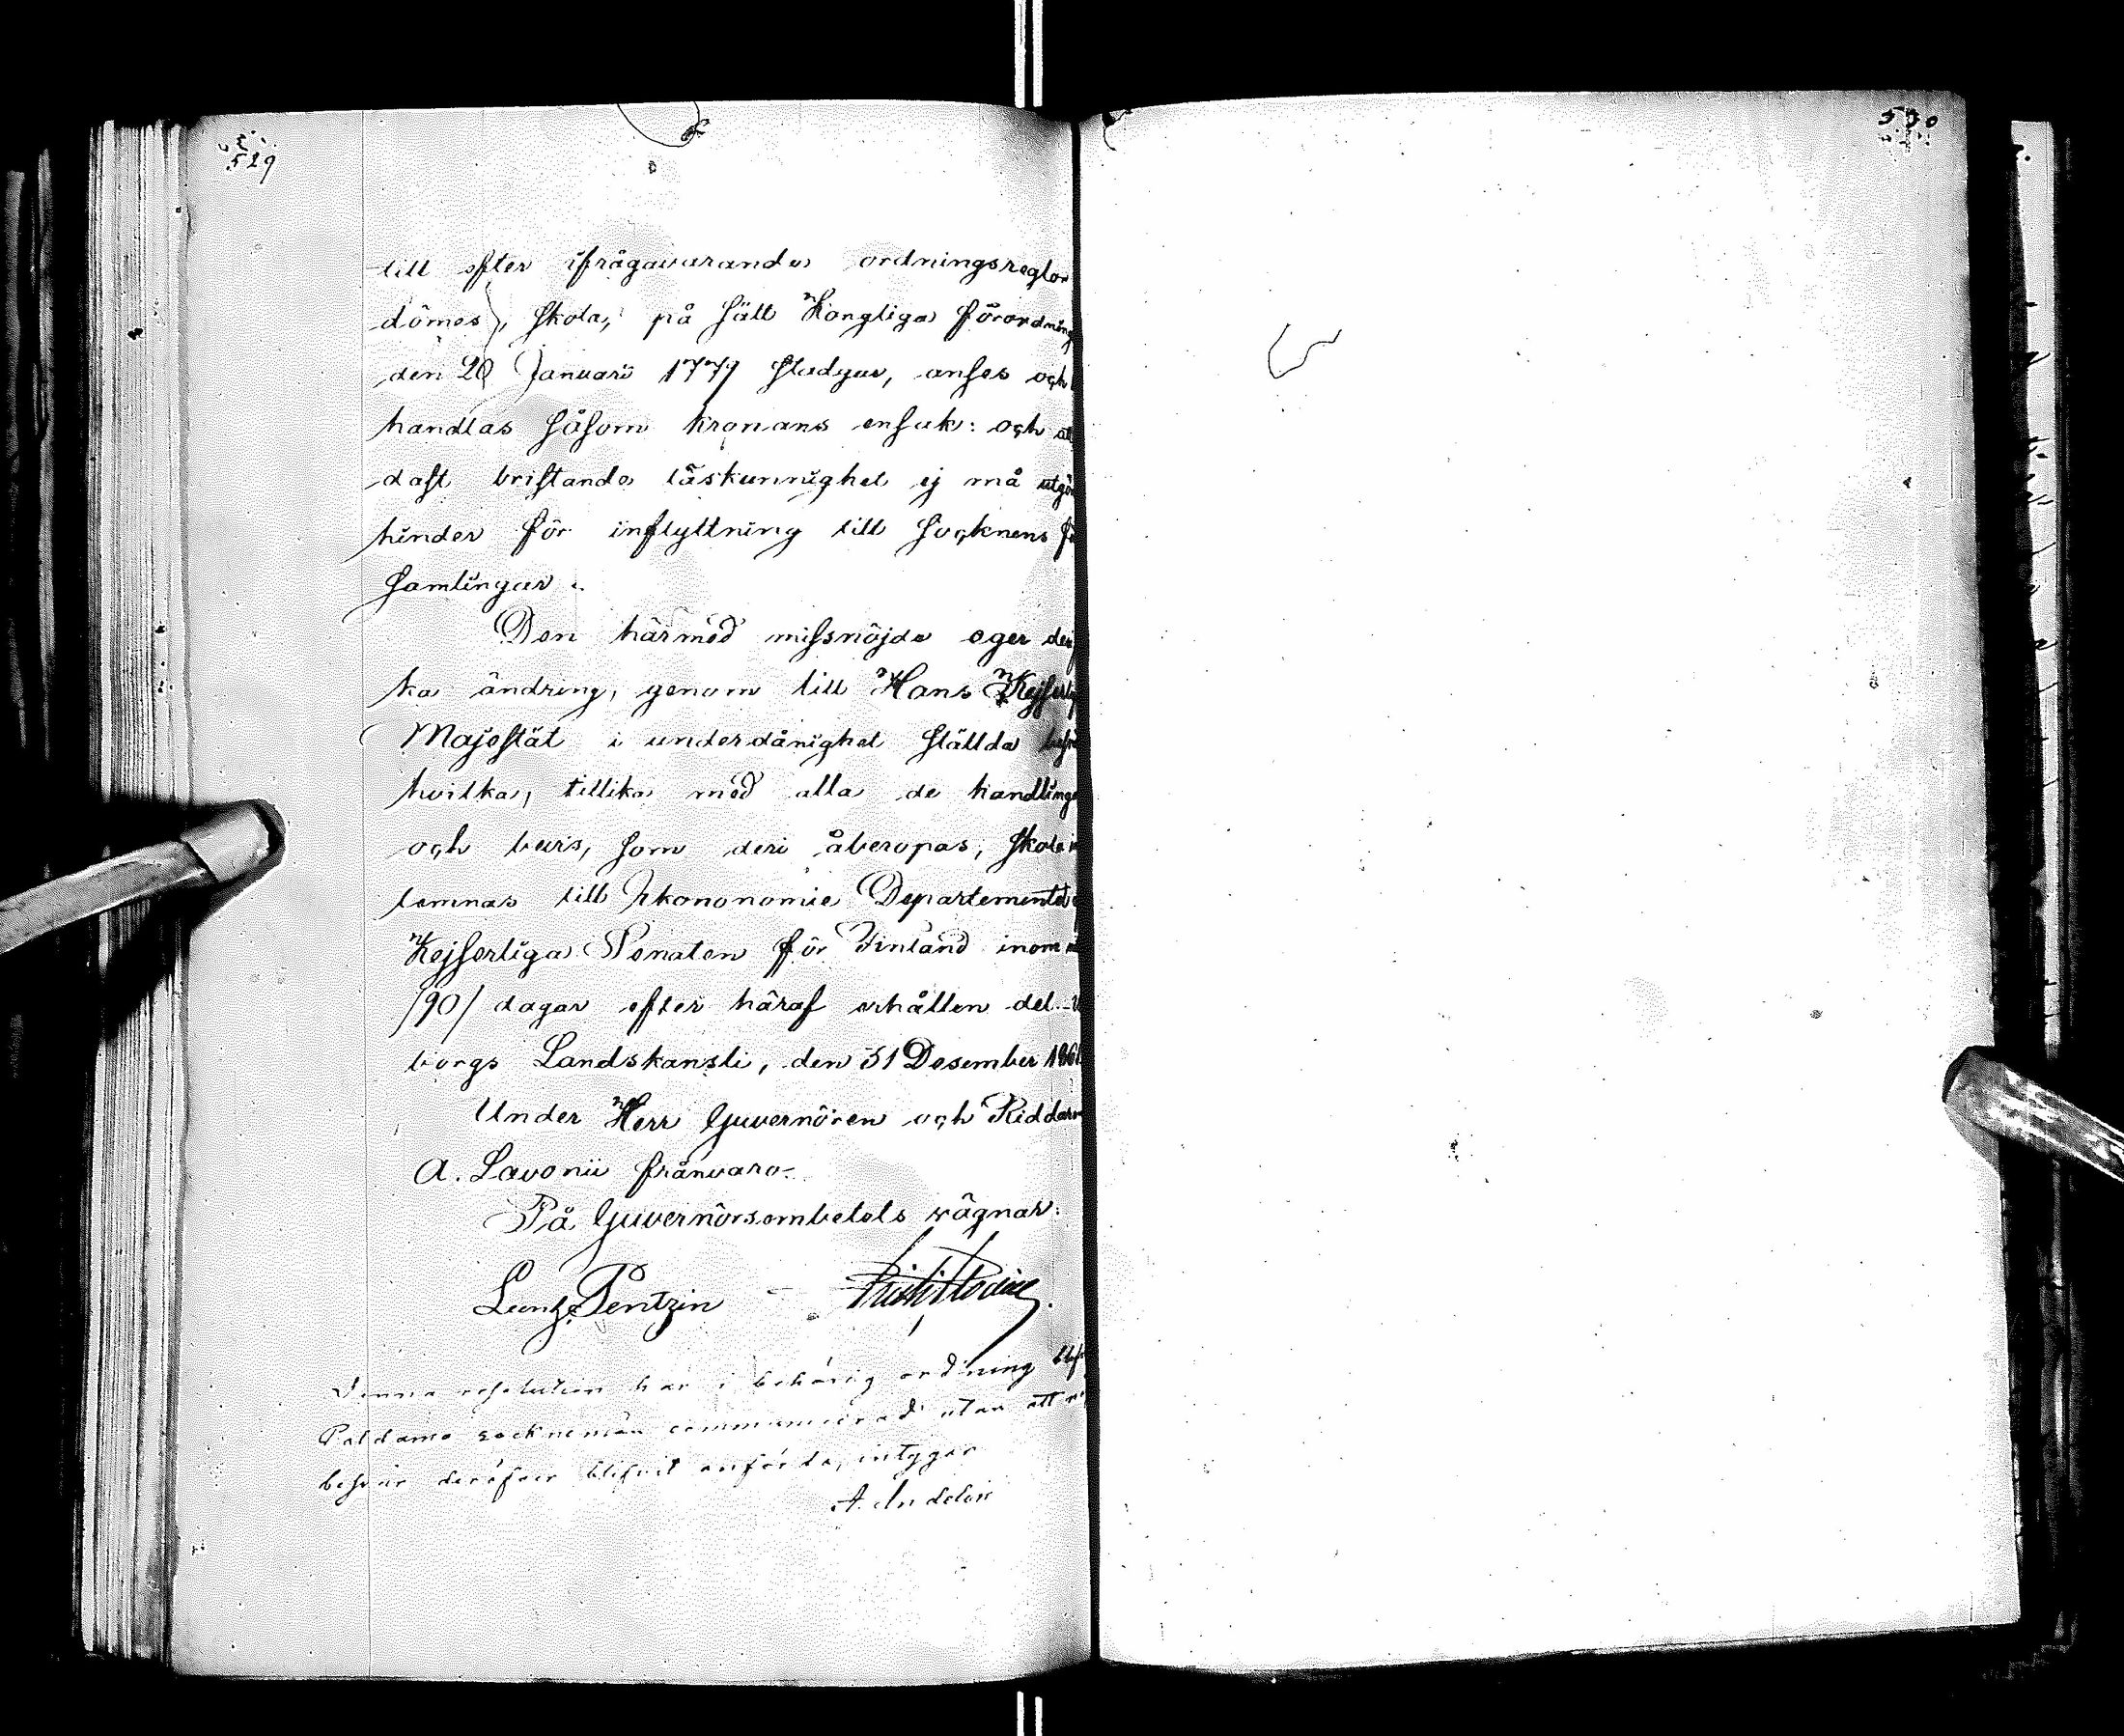 529
till efter ifrågavarande ordningsreglor
dömes, skola, på sätt Kongliga förordning
den 20 Januarii 1779 stadgar, anses och
handlas såsom kronans ensak: och
dast bristande läskunnighet ej må utgör
hinder för inflyttning till Socknens
samlingar.
Den härmed missnöjde eger
ka ändring, genom till Hans Kejserlig
Majestät i underdånighet ställda besvär
hvilka, tillika med alla de handlingar
och bevis, som deri åberopas, skola
lemnas till Ekononomie Departementet
Kejserliga Senaten för Finland inom
/90/ dagar efter häraf erhållen del.
borgs Landskansli, den 31 December 186
Under Herr Guvernören och Riddaren
A. Lavonii frånvaro.
På Guvernörsembetets vägnar:
Pentzin
Denna resolution har i behörig ordning
Paldamo sockneman communicerad utan att
besvär deröfver blifvit anförda, intygar
530